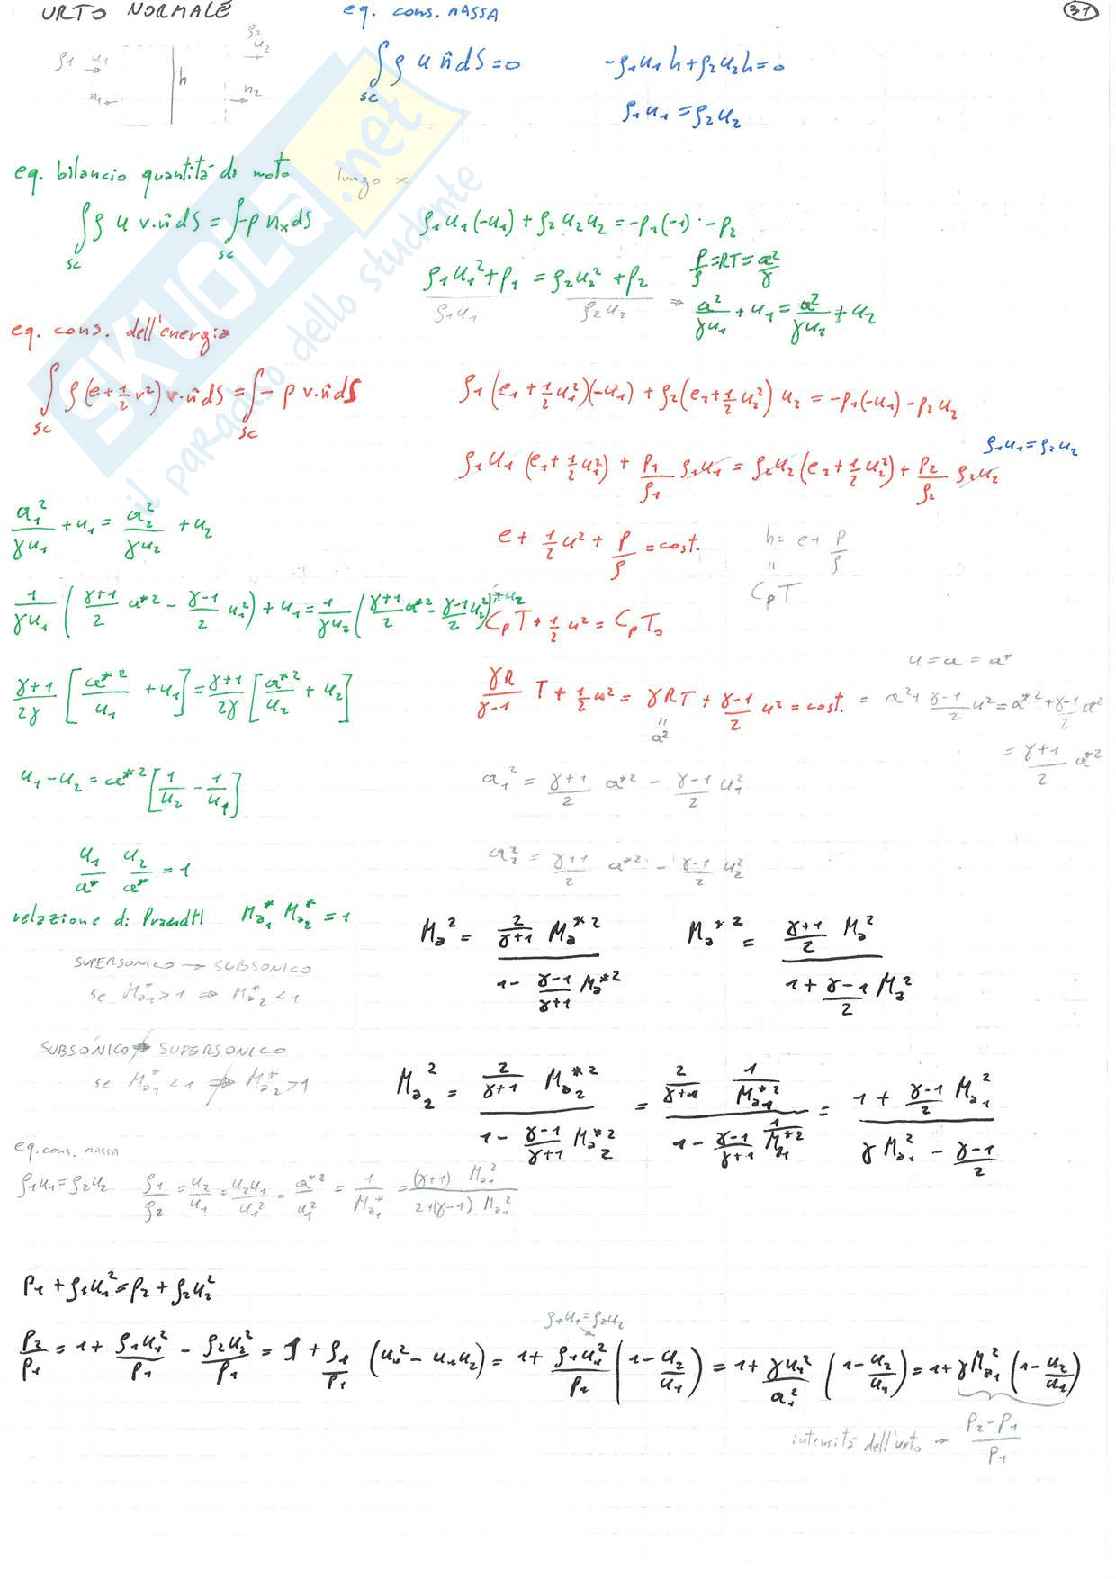 URTO NORMALE
eq. cons. MASSA
31
ρ1 u1
ρ2 u2
h
n1
n2
∫sc ρ u n̂ dS = 0
-ρ1u1h + ρ2u2h = 0
ρ1u1 = ρ2u2
eq. bilancio quantità di moto lungo x
∫sc ρ u v·n̂ dS = ∫sc -p nx dS
ρ1u1(-u1) + ρ2u2u2 = -p1(-1) · -p2
ρ1u1² + p1 = ρ2u2² + p2
ρ1u1 ρ2u2
p/ρ = RT = a²/γ
⇒ a²/γu1 + u1 = a²/γu2 + u2
eq. cons. dell'energia
∫sc ρ(e + 1/2 v²) v·n̂ dS = ∫sc - p v·n̂ dS
ρ1(e1 + 1/2 u1²)(-u1) + ρ2(e2 + 1/2 u2²) u2 = -p1(-u1) - p2u2
ρ1u1 = ρ2u2
ρ1u1(e1 + 1/2 u1²) + p1/ρ1 ρ1u1 = ρ2u2(e2 + 1/2 u2²) + p2/ρ2 ρ2u2
a1²/γu1 + u1 = a2²/γu2 + u2
e + 1/2 u² + p/ρ = cost.
h = e + p/ρ
"
CpT
1/γu1 (γ+1/2 a*² - γ-1/2 u1²) + u1 = 1/γu2 (γ+1/2 a*² - γ-1/2 u2²) + u2
CpT + 1/2 u² = CpT0
u = a = a*
γ+1/2γ [a*²/u1 + u1] = γ+1/2γ [a*²/u2 + u2]
γR/γ-1 T + 1/2 u² = γRT + γ-1/2 u² = cost. = a² + γ-1/2 u² = a*² + γ-1/2 a²
"
a²
= γ+1/2 a*²
u1 - u2 = a*² [1/u2 - 1/u1]
a1² = γ+1/2 a*² - γ-1/2 u1²
u1/a* u2/a* = 1
a2² = γ+1/2 a*² - γ-1/2 u2²
relazione di Prandtl Ma1* Ma2* = 1
Ma² = 2/γ+1 Ma*² / 1 - γ-1/γ+1 Ma*²
Ma*² = γ+1/2 Ma² / 1 + γ-1/2 Ma²
SUPERSONICO → SUBSONICO
se Ma1* > 1 ⇒ Ma2* < 1
SUBSONICO ↛ SUPERSONICO
se Ma1* < 1 ⇏ Ma2* > 1
Ma2² = 2/γ+1 Ma2*² / 1 - γ-1/γ+1 Ma2*² = 2/γ+1 1/Ma1*² / 1 - γ-1/γ+1 1/Ma1*² = 1 + γ-1/2 Ma1² / γMa1² - γ-1/2
eq. cons. massa
ρ1u1 = ρ2u2 ρ1/ρ2 = u2/u1 = u2u1/u1² = a*²/u1² = 1/Ma1* = (γ+1) Ma1² / 2+(γ-1) Ma1²
p1 + ρ1u1² = p2 + ρ2u2²
ρ1u1 = ρ2u2
p2/p1 = 1 + ρ1u1²/p1 - ρ2u2²/p1 = 1 + ρ1/p1 (u1² - u1u2) = 1 + ρ1u1²/p1 (1 - u2/u1) = 1 + γu1²/a1² (1 - u2/u1) = 1 + γMa1² (1 - u2/u1)
intensità dell'urto → p2-p1/p1
SKUOLA.net
il paradiso dello studente